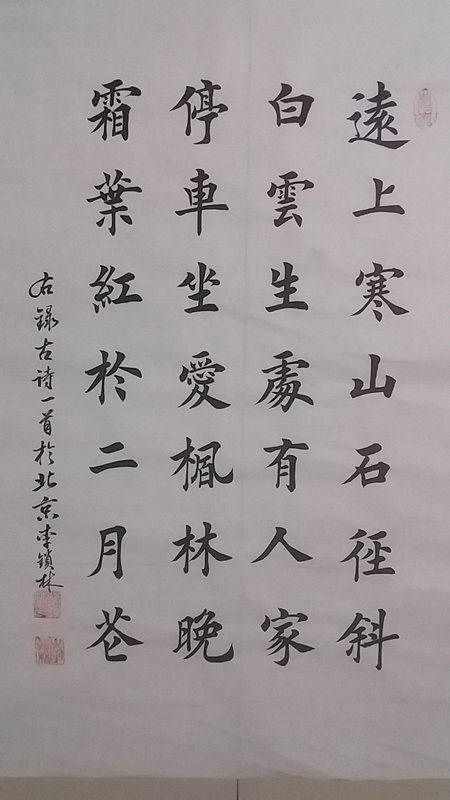 遠上寒山石徑斜
白雲生處有人家
停車坐愛楓林晚
霜葉紅於二月花
右録古詩一首於北京李鎖林